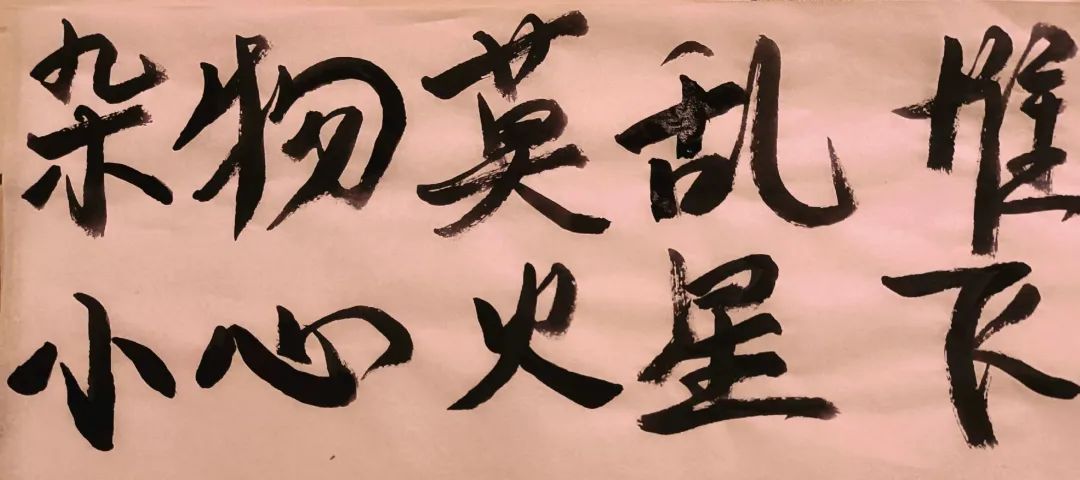 杂物莫乱堆
小心火星下